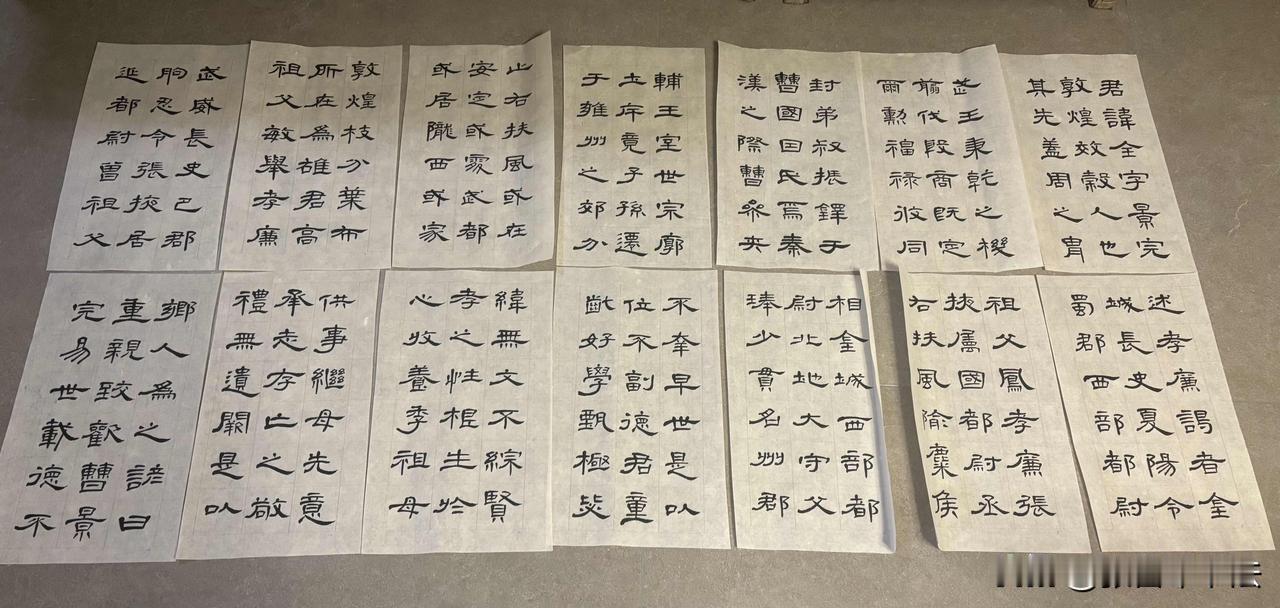 君諱全字景完
敦煌效穀人也
其先蓋周之胄
武王秉乾之機
翦伐殷商既定
爾勲福祿攸同
封弟叔振鐸于
曹國因氏焉秦
漢之際曹參夾
輔王室世宗廓
土斥竟子孫遷
于雍州之郊分
止右扶風或在
安定或處武都
或居隴西或家
敦煌枝分葉布
所在為雄君高
祖父敏舉孝廉
武威長史巴郡
朐忍令張掖居
延都尉曾祖父
述孝廉謁者金
城長史夏陽令
蜀郡西部都尉
祖父鳳孝廉張
掖屬國都尉丞
右扶風隃麋侯
相金城西部都
尉北地大守父
琫少貫名州郡
不幸早世是以
位不副德君童
齔好學甄極毖
緯無文不綜賢
孝之性根生於
心收養季祖母
供事繼母先意
承志存亡之敬
禮無遺闕是以
鄉人為之諺曰
重親致歡曹景
完易世載德不